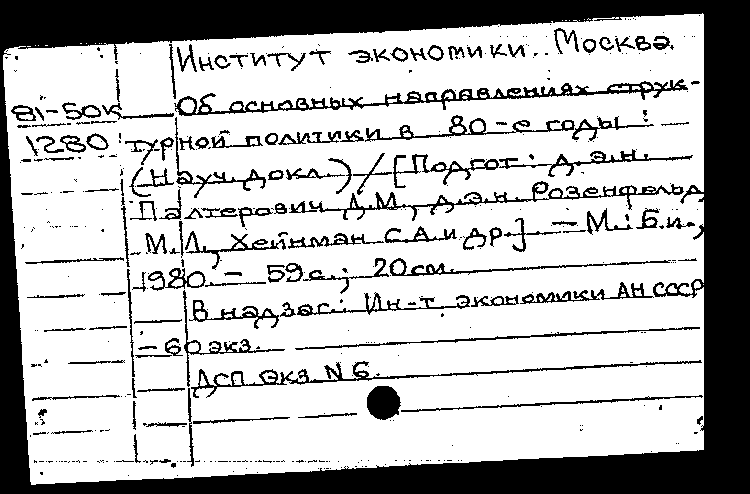 Институт экономики. Москва.
81-50к Об основных направлениях струк-
1280 турной политики в 80-е годы :
(Науч. докл.) / [Подгот.: д.э.н.
Палтерович Д.М., д.э.н. Розенфельд
М.Л., Хейнман С.А. и др.]. — М.: Б.и.,
1980. - 59с.; 20см.
В надзаг.: Ин-т экономики АН СССР
- 60 экз.
ДСП. Экз. N 6.